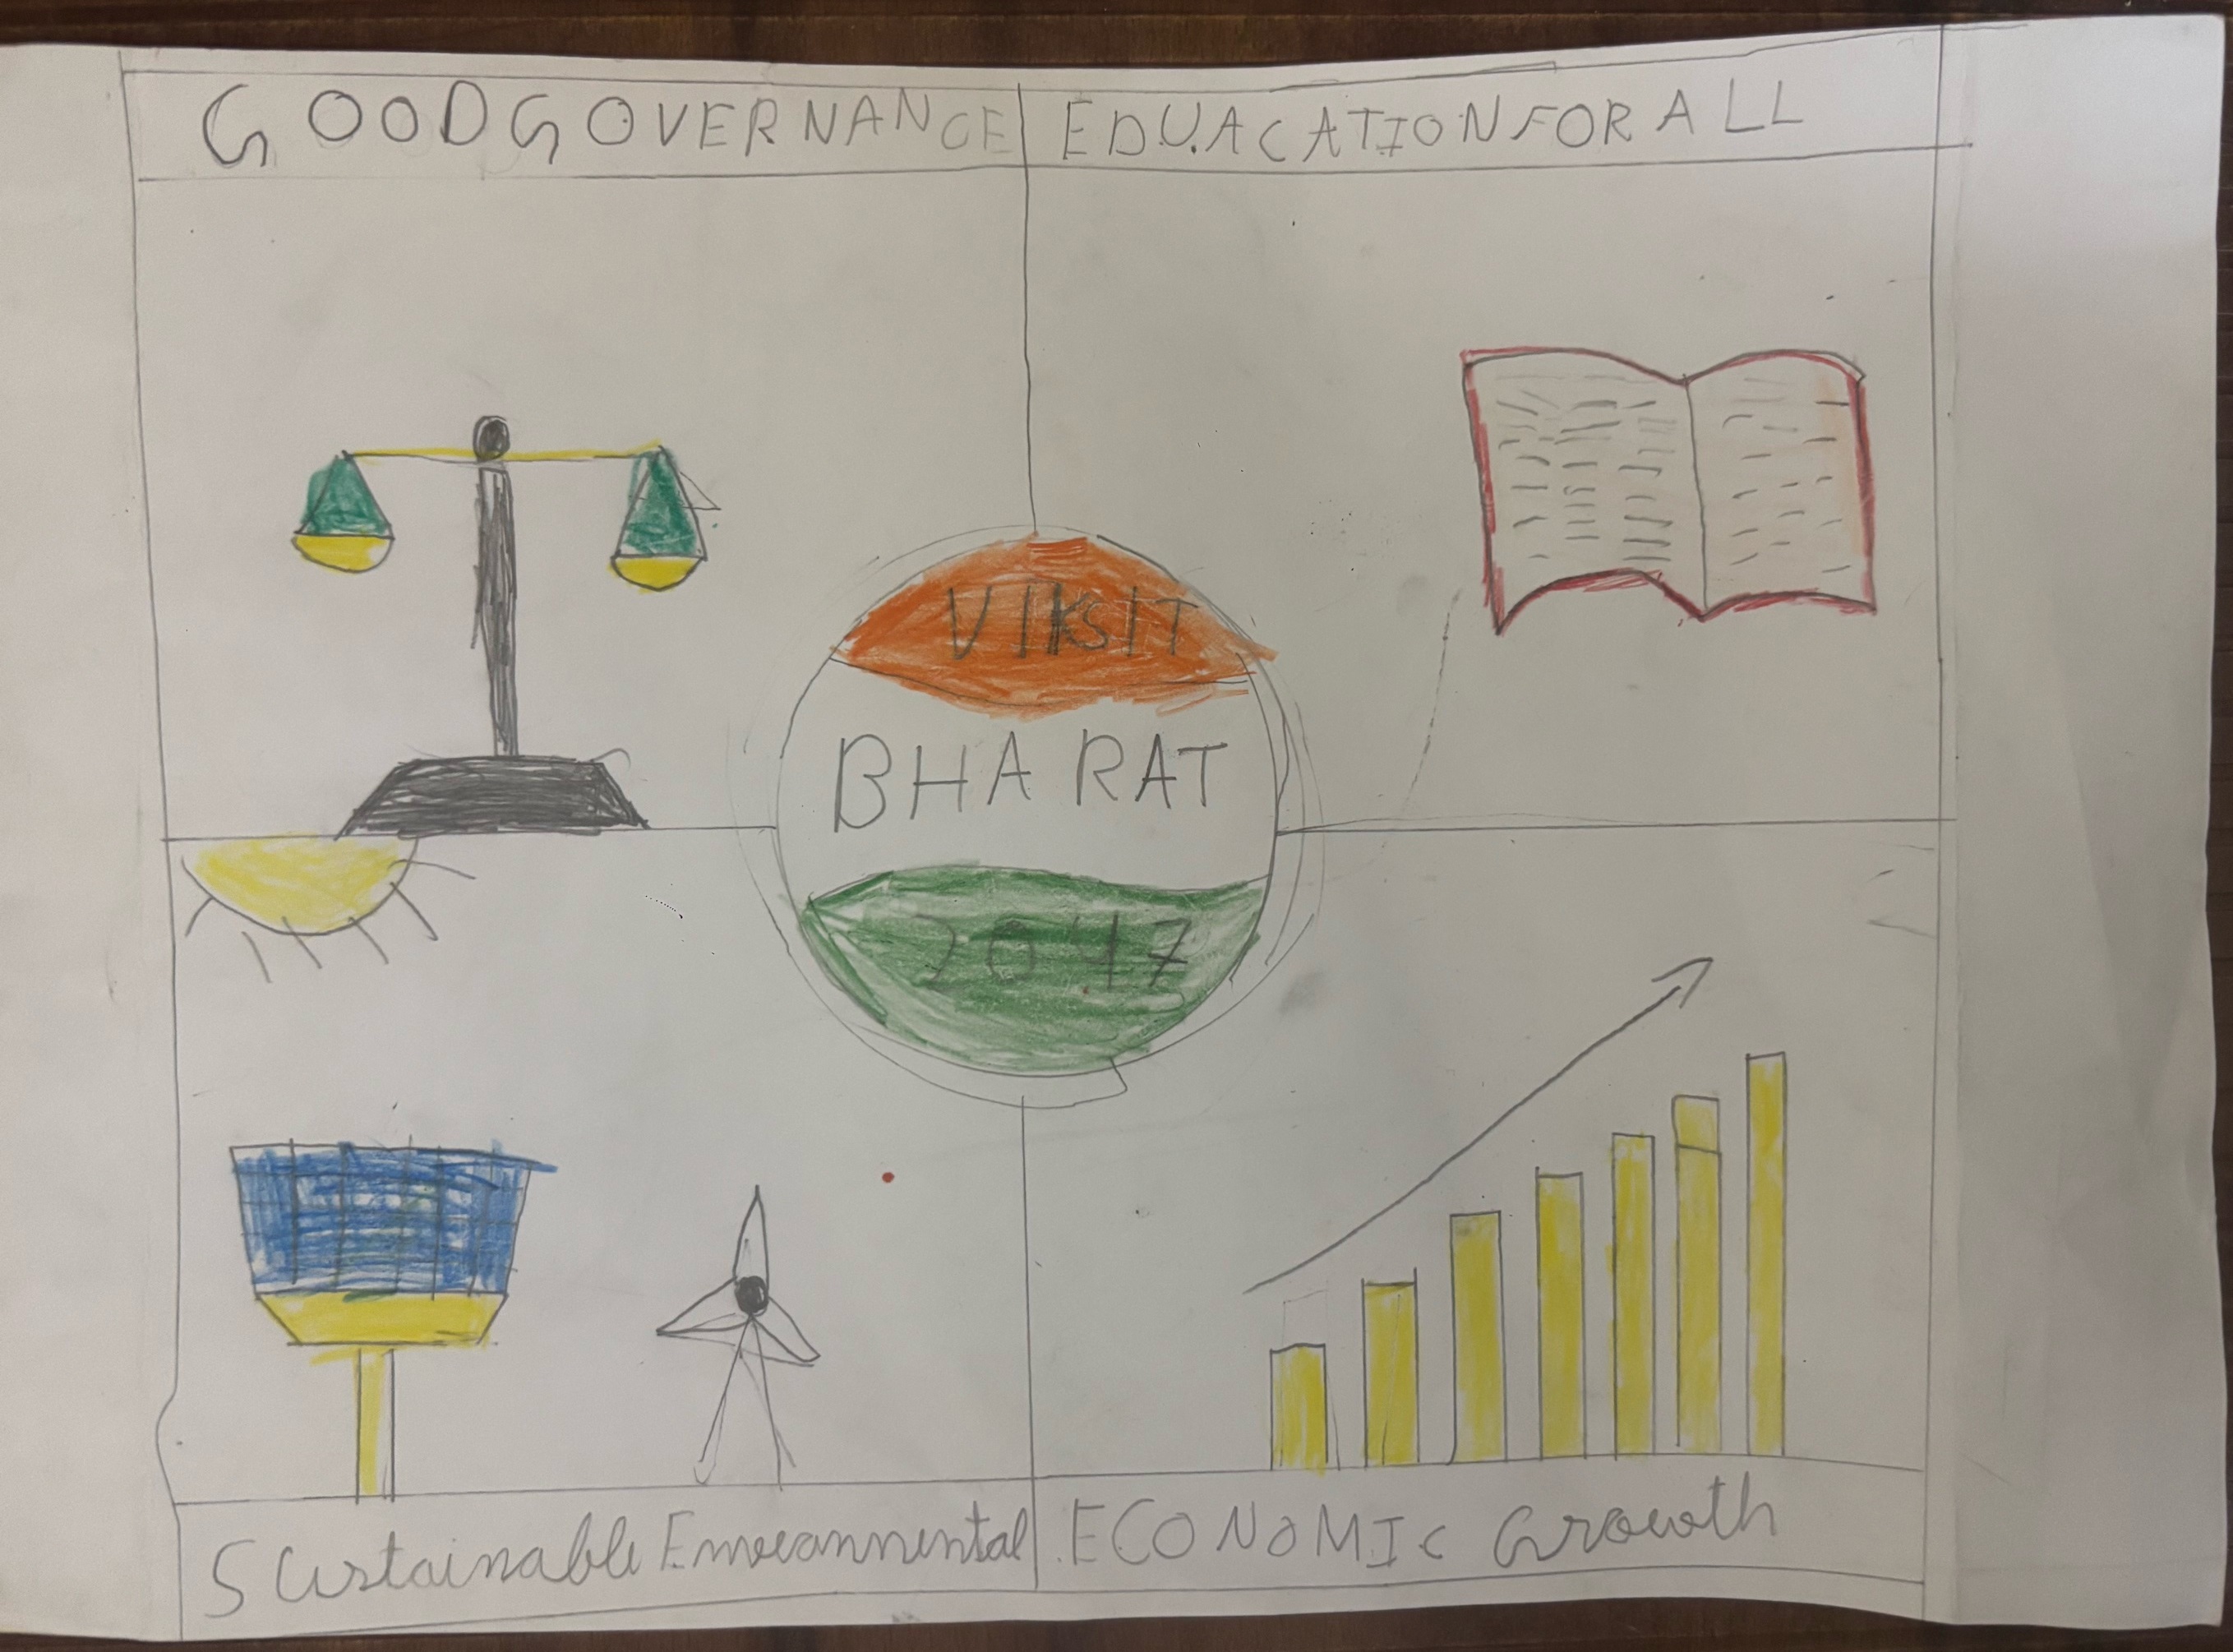 GOOD GOVERNANCE
EDUACATION FOR ALL
VIKSIT
BHARAT
2047
Sustainable
ECONOMIC Growth